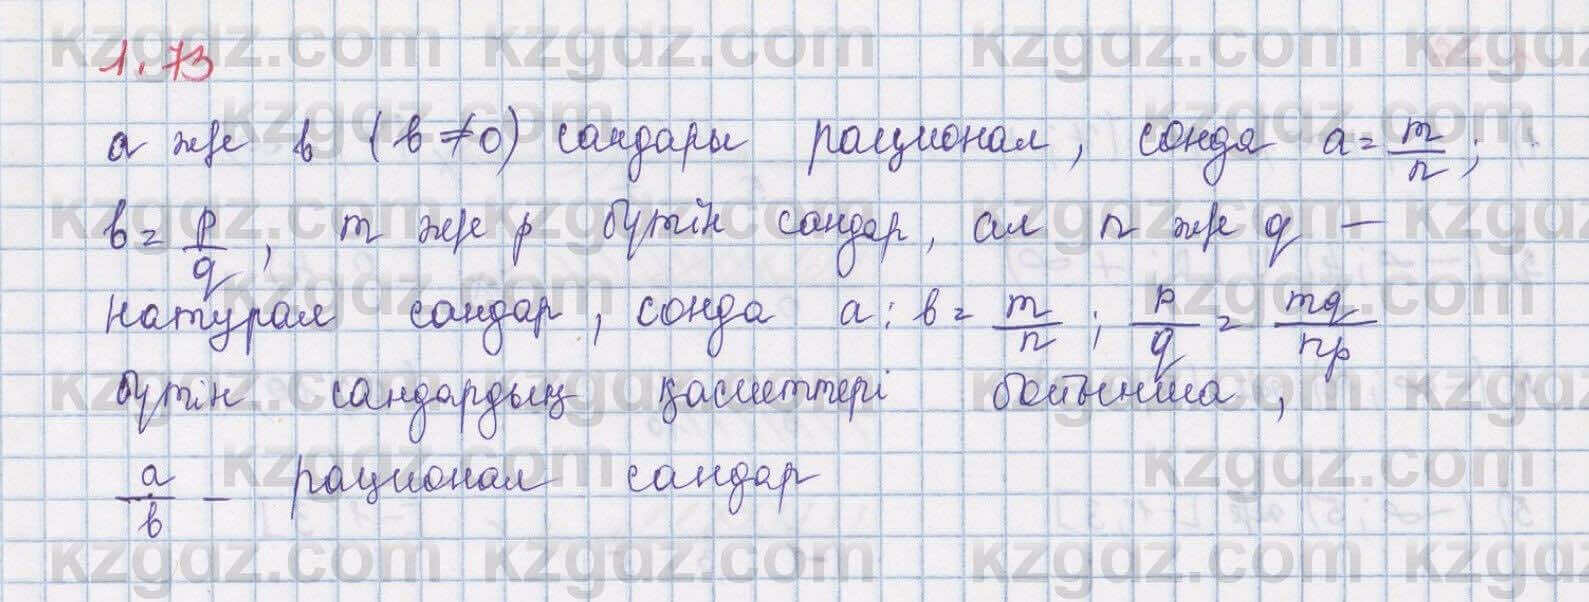 1.73
а же в (в ≠ 0) сандары рационал, сонда а = m/n ;
в = p/q , m же p бүтін сандар, ал n же q –
натурал сандар, сонда а : в = m/n ; p/q = mq/np
бүтін сандардың қасиеттері бойынша,
а/в – рационал сандар
kzgdz.com